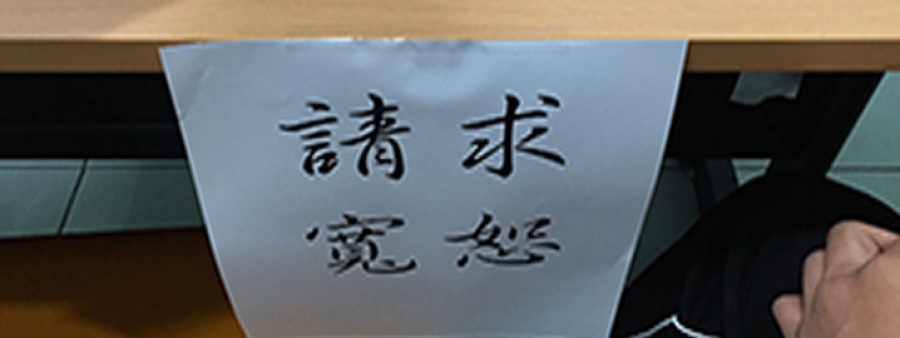 請求
寬恕